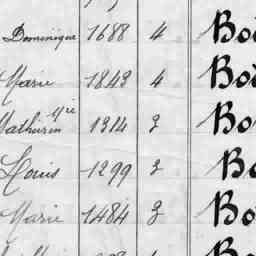 Dominique 1688 4 Bo
Marie 1843 4 Bo
Mathurin Mie 1314 3 Bo
Louis 1299 3 Bo
Marie 1484 3 Bo